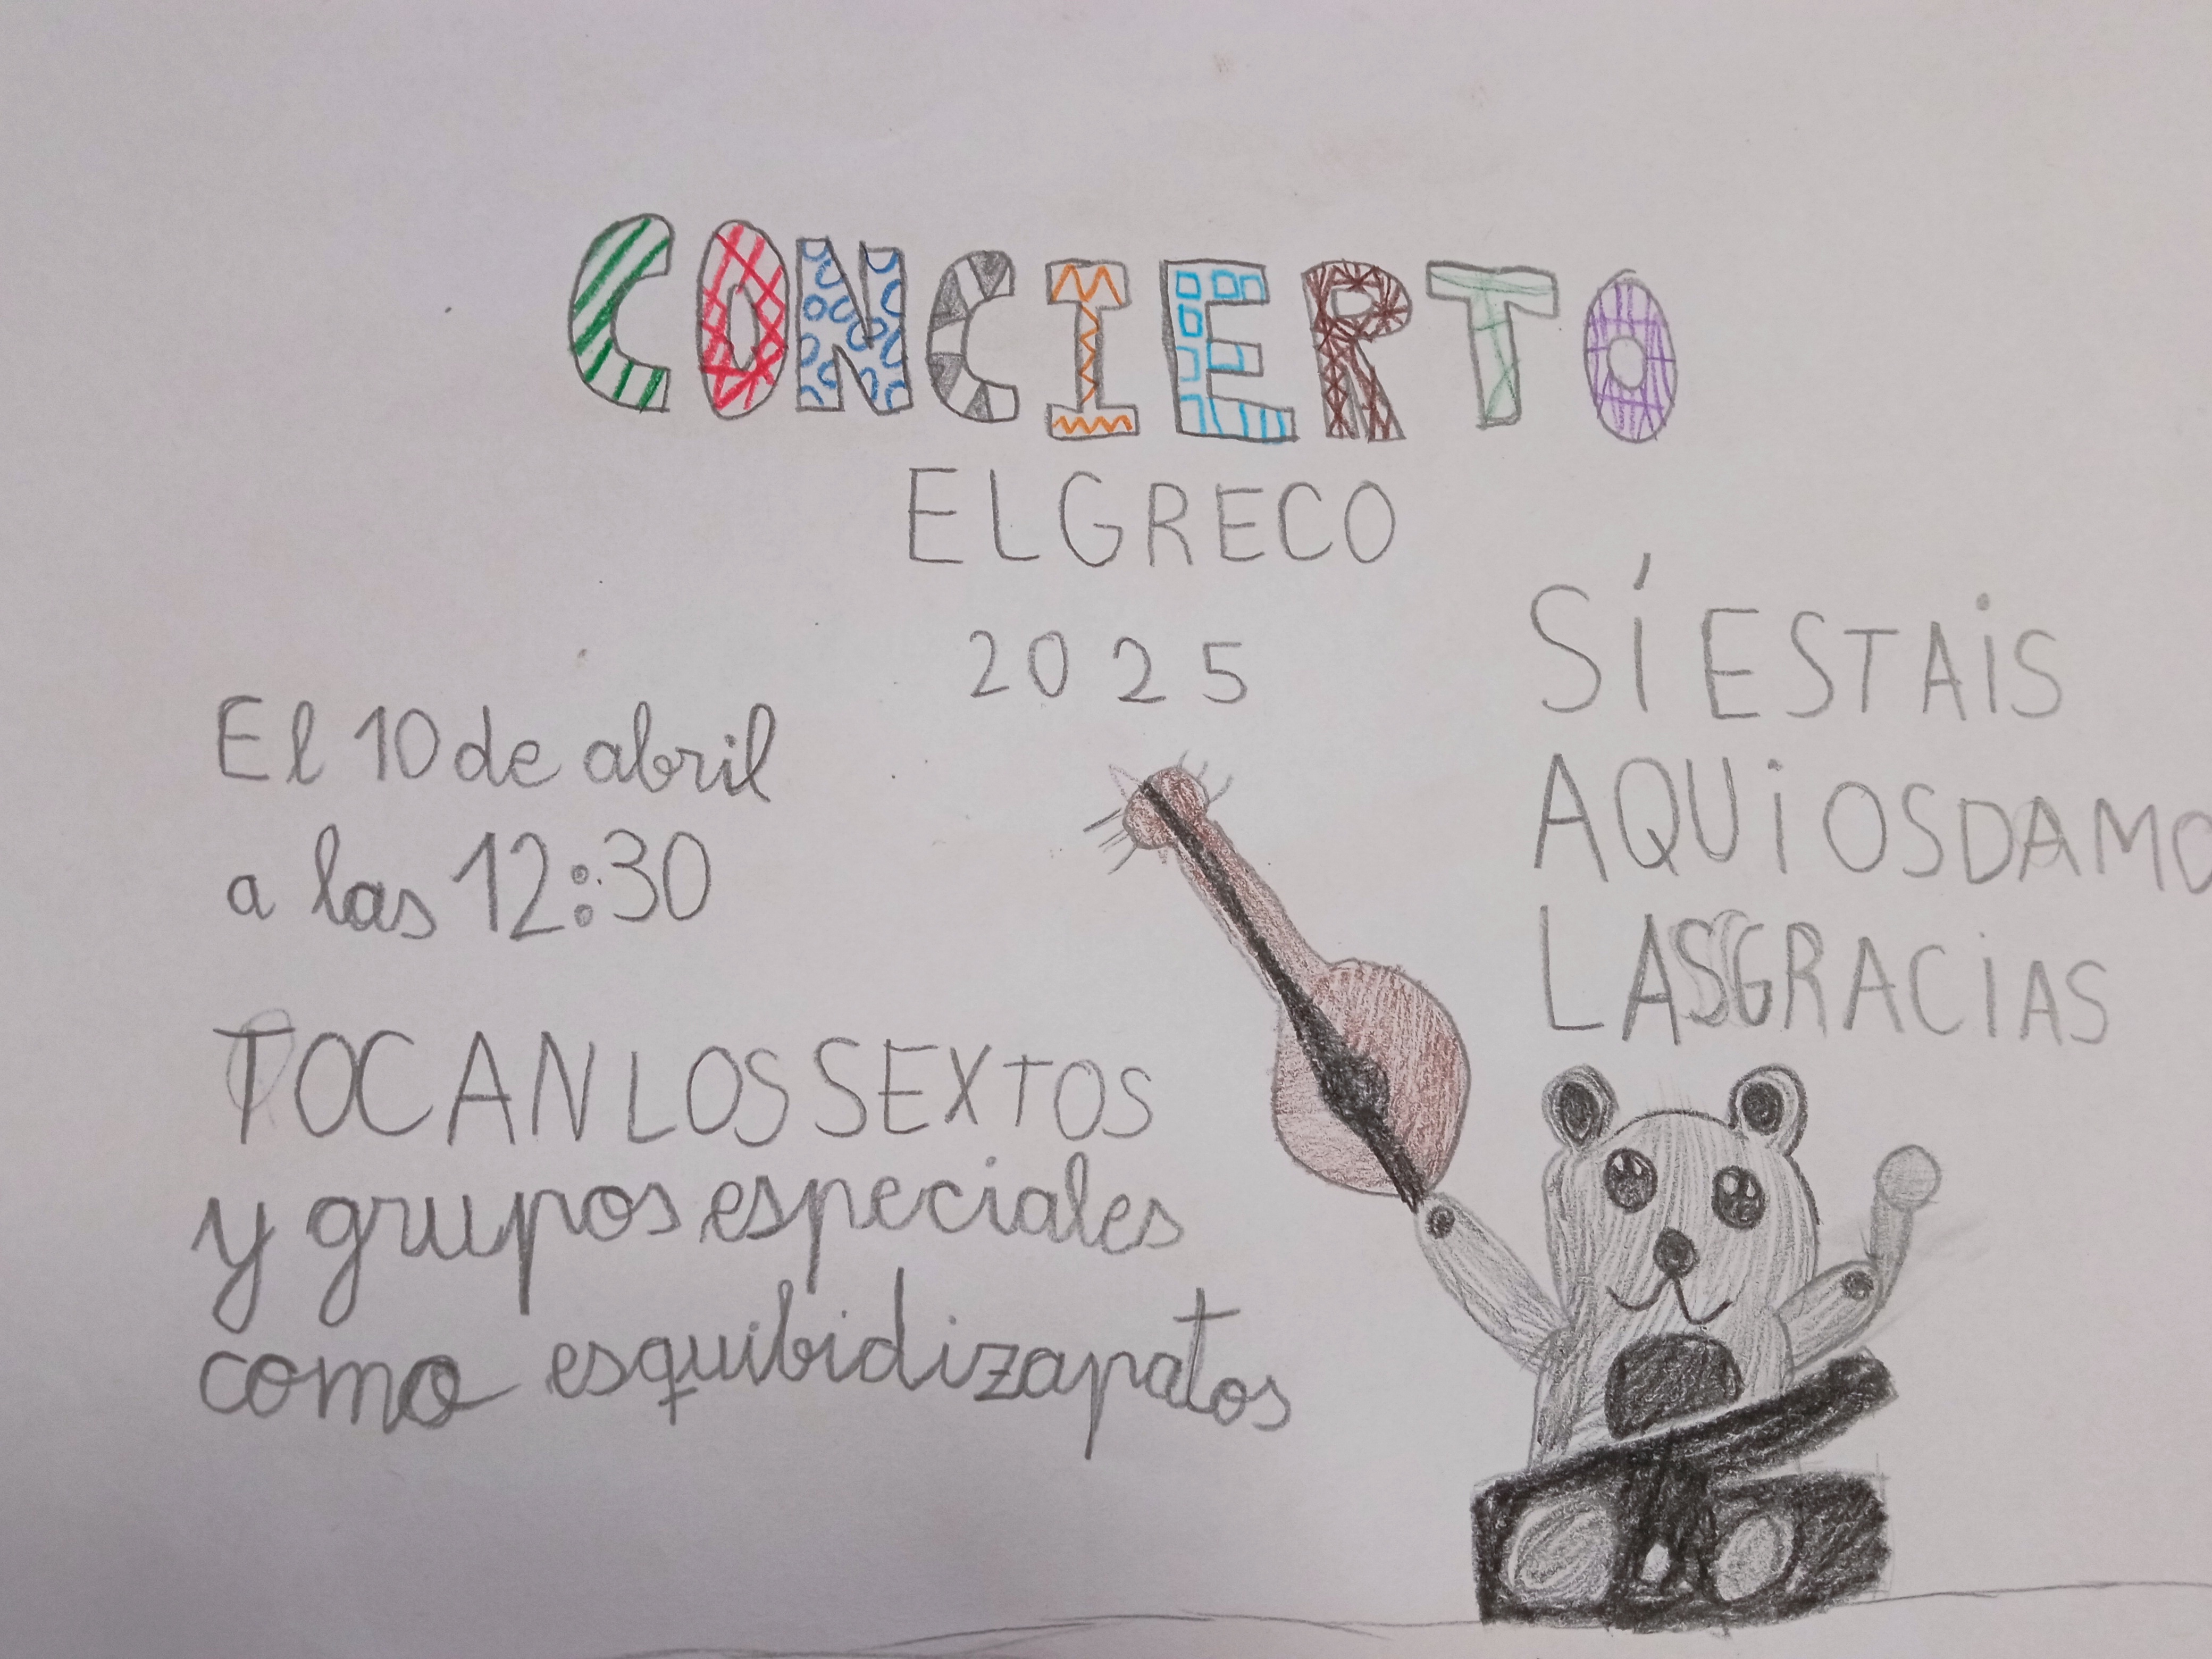 CONCIERTO
EL GRECO
2025
El 10 de abril
a las 12:30
TOCAN LOS SEXTOS
y grupos especiales
como esquibidizapatos
SÍ ESTAIS
AQUI OS DAMO
LAS GRACIAS